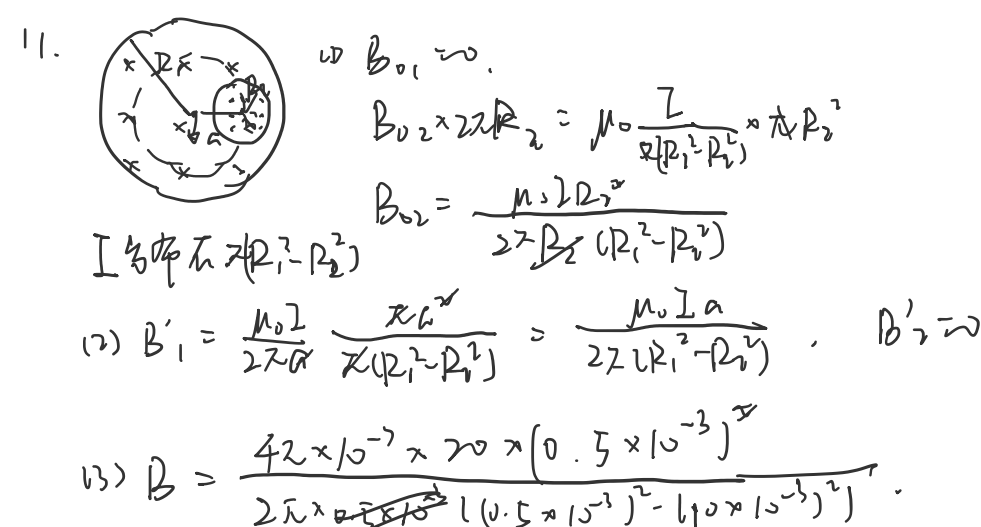 11.
(1) B₀₁ = 0.
B₀₂ × 2πR₂ = μ₀ I/(π(R₁² - R₂²)) × πR₂²
B₀₂ = μ₀IR₂²/(2πR₂(R₁² - R₂²))
I 均布在 π(R₁² - R₂²)
(2) B'₁ = μ₀I/(2πa) πa²/(π(R₁² - R₂²)) = μ₀Ia/(2π(R₁² - R₂²)) . B'₂ = 0
(3) B = 4π×10⁻⁷ × 20 × (0.5×10⁻³)²/(2π×0.5×10⁻³((0.5×10⁻³)² - (10×10⁻³)²) .